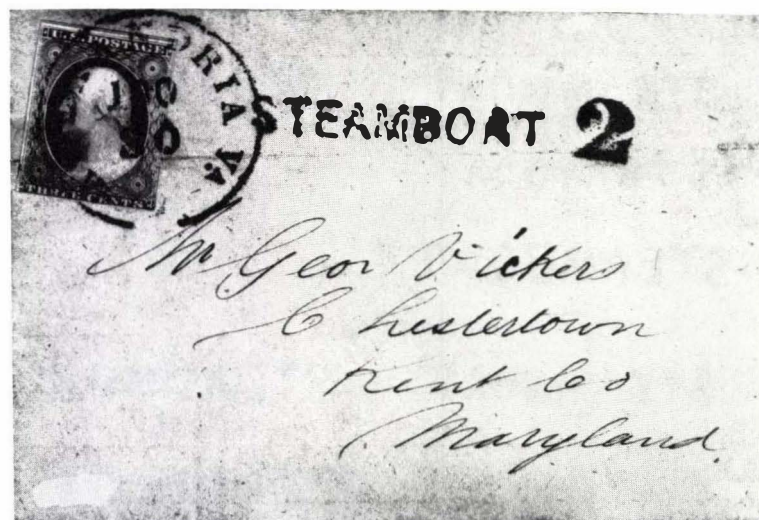 U.S. POSTAGE
THREE CENTS
ORIA VA.
STEAMBOAT 2
Mr Geor Vickers
Chestertown
Kent Co
Maryland.